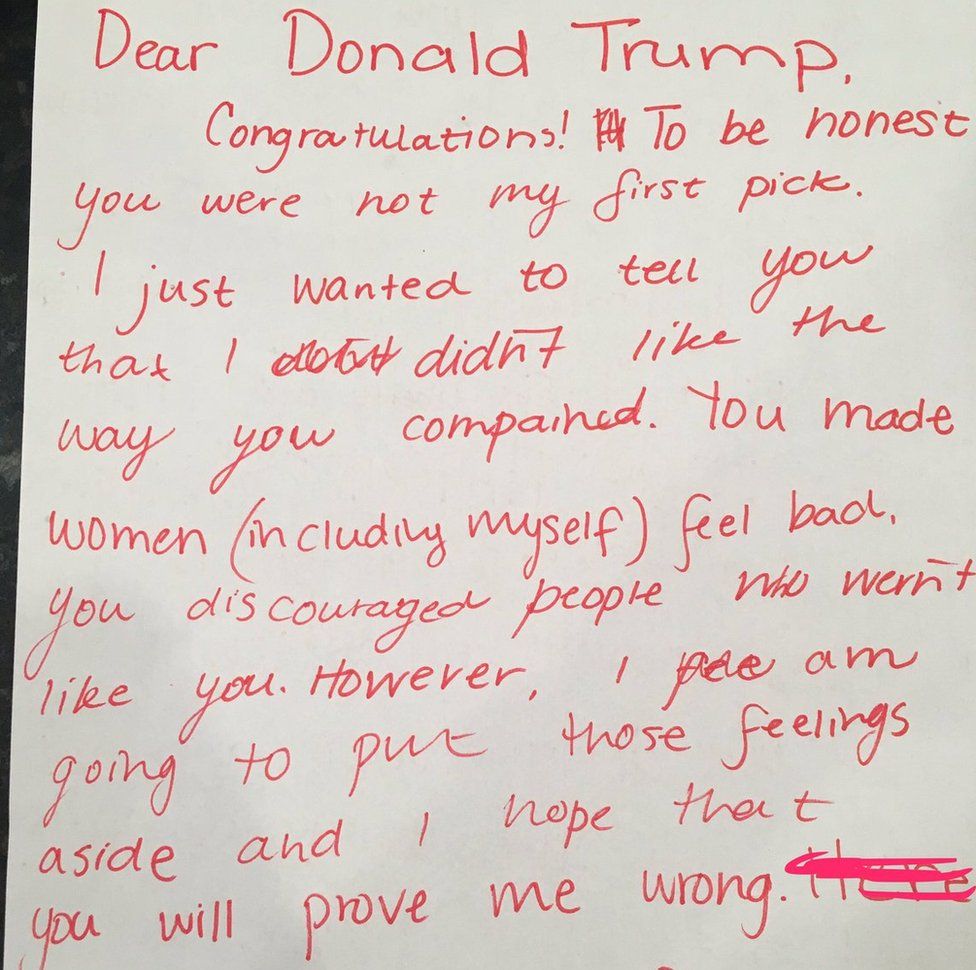 Dear Donald Trump,
Congratulations! To be honest
you were not my first pick.
I just wanted to tell you
that I didn't like the
way you compained. You made
women (including myself) feel bad,
you discouraged people who wern't
like you. However, I am
going to put those feelings
aside and I hope that
you will prove me wrong.